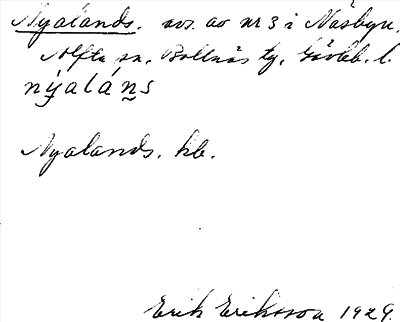 Nyalands. avs. av nr 3 i Näsbyn,
Alfta sn, Bollnäs tg, Gävleb. l.
nýaláns
Nyalands. kb.
Erik Eriksson 1929.